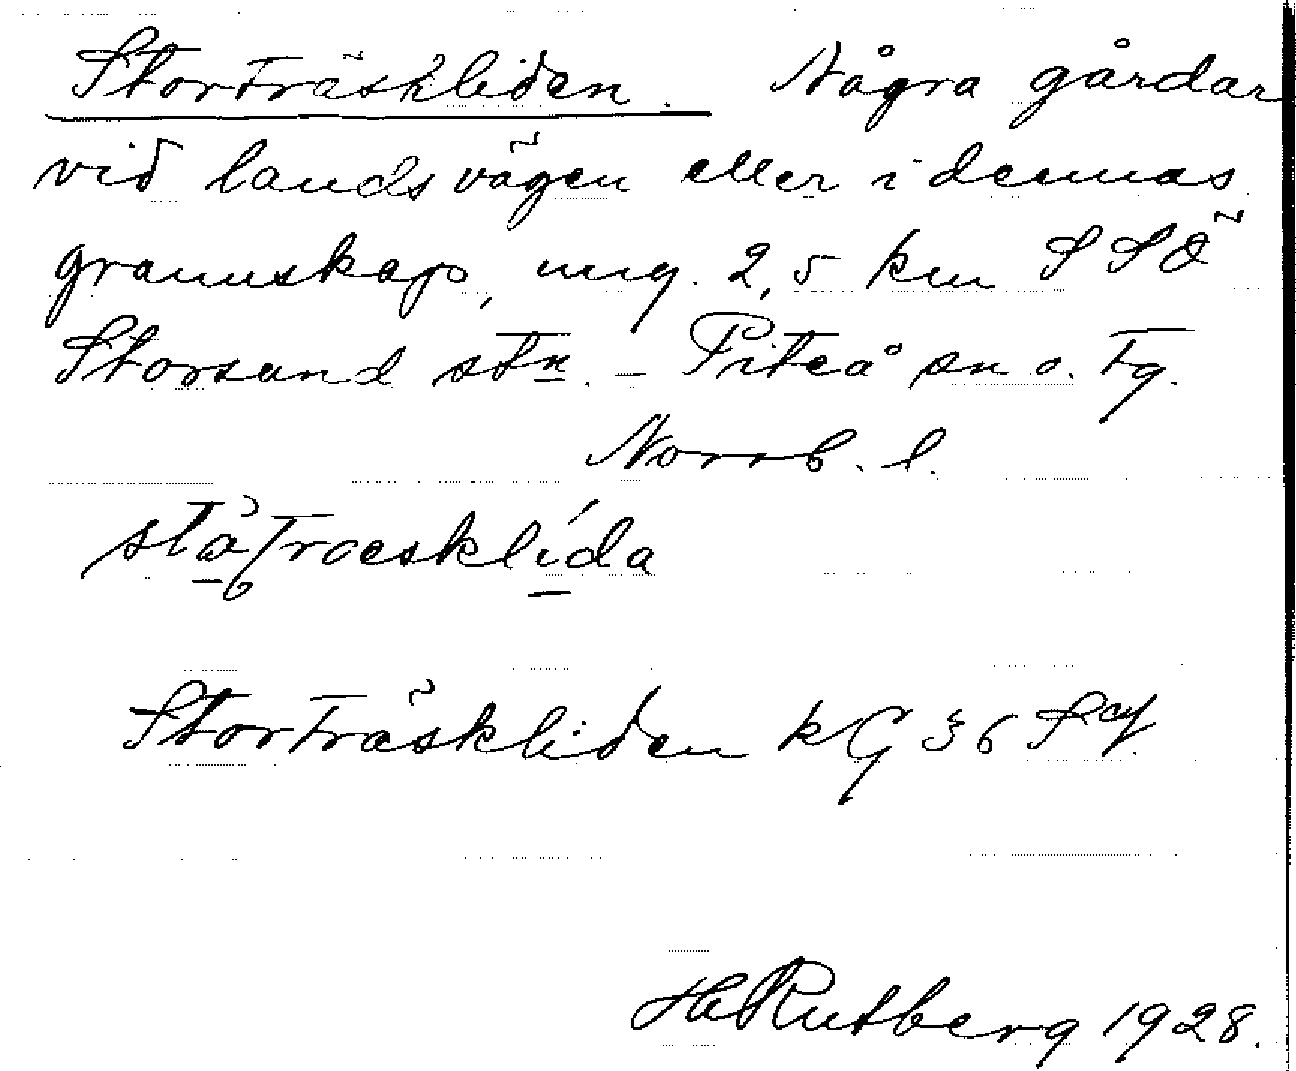 Storträskliden. Några gårdar
vid landsvägen eller i dennas
grannskap, ung. 2,5 km SSÖ
Storsund stn. - Piteå sn o. tg.
Norrb. l.
Storträskliden kG 36 Sty
H Rutberg 1928.